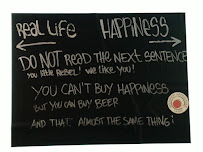 Real Life HAPPINESS
DO NOT READ THE NEXT SENTENCE
YOU LITTLE REBEL! WE LIKE YOU!
YOU CAN'T BUY HAPPINESS
BUT YOU CAN BUY BEER
AND THAT ALMOST THE SAME THING!